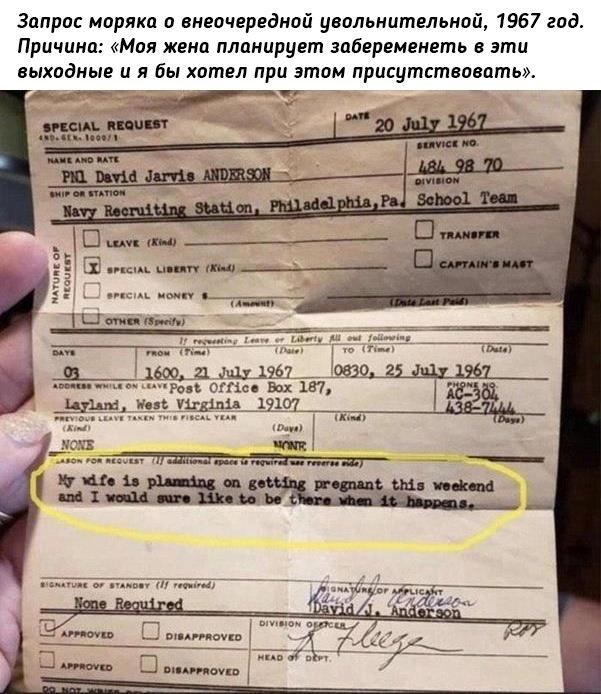 Запрос моряка о внеочередной увольнительной, 1967 год.
Причина: «Моя жена планирует забеременеть в эти
выходные и я бы хотел при этом присутствовать».
SPECIAL REQUEST
DATE 20 July 1967
NAME AND RATE
SERVICE NO.
PN1 David Jarvis ANDERSON
484 98 70
SHIP OR STATION
DIVISION
Navy Recruiting Station, Philadelphia, Pa.
School Team
NATURE OF REQUEST
LEAVE (Kind)
TRANSFER
X SPECIAL LIBERTY (Kind)
CAPTAIN'S MAST
SPECIAL MONEY $
(Amount)
(Date Last Paid)
OTHER (Specify)
If requesting Leave or Liberty fill out following
DAYS
FROM (Time) (Date)
TO (Time) (Date)
03
1600, 21 July 1967
0830, 25 July 1967
ADDRESS WHILE ON LEAVE Post Office Box 187,
PHONE NO.
AC-304
Layland, West Virginia 19107
438-7444
PREVIOUS LEAVE TAKEN THIS FISCAL YEAR
(Kind) (Days)
(Kind) (Days)
NONE NONE
REASON FOR REQUEST (If additional space is required use reverse side)
My wife is planning on getting pregnant this weekend
and I would sure like to be there when it happens.
SIGNATURE OF STANDBY (If required)
SIGNATURE OF APPLICANT
None Required
David J. Anderson
David J. Anderson
APPROVED DISAPPROVED
DIVISION OFFICER
APPROVED DISAPPROVED
HEAD OF DEPT.